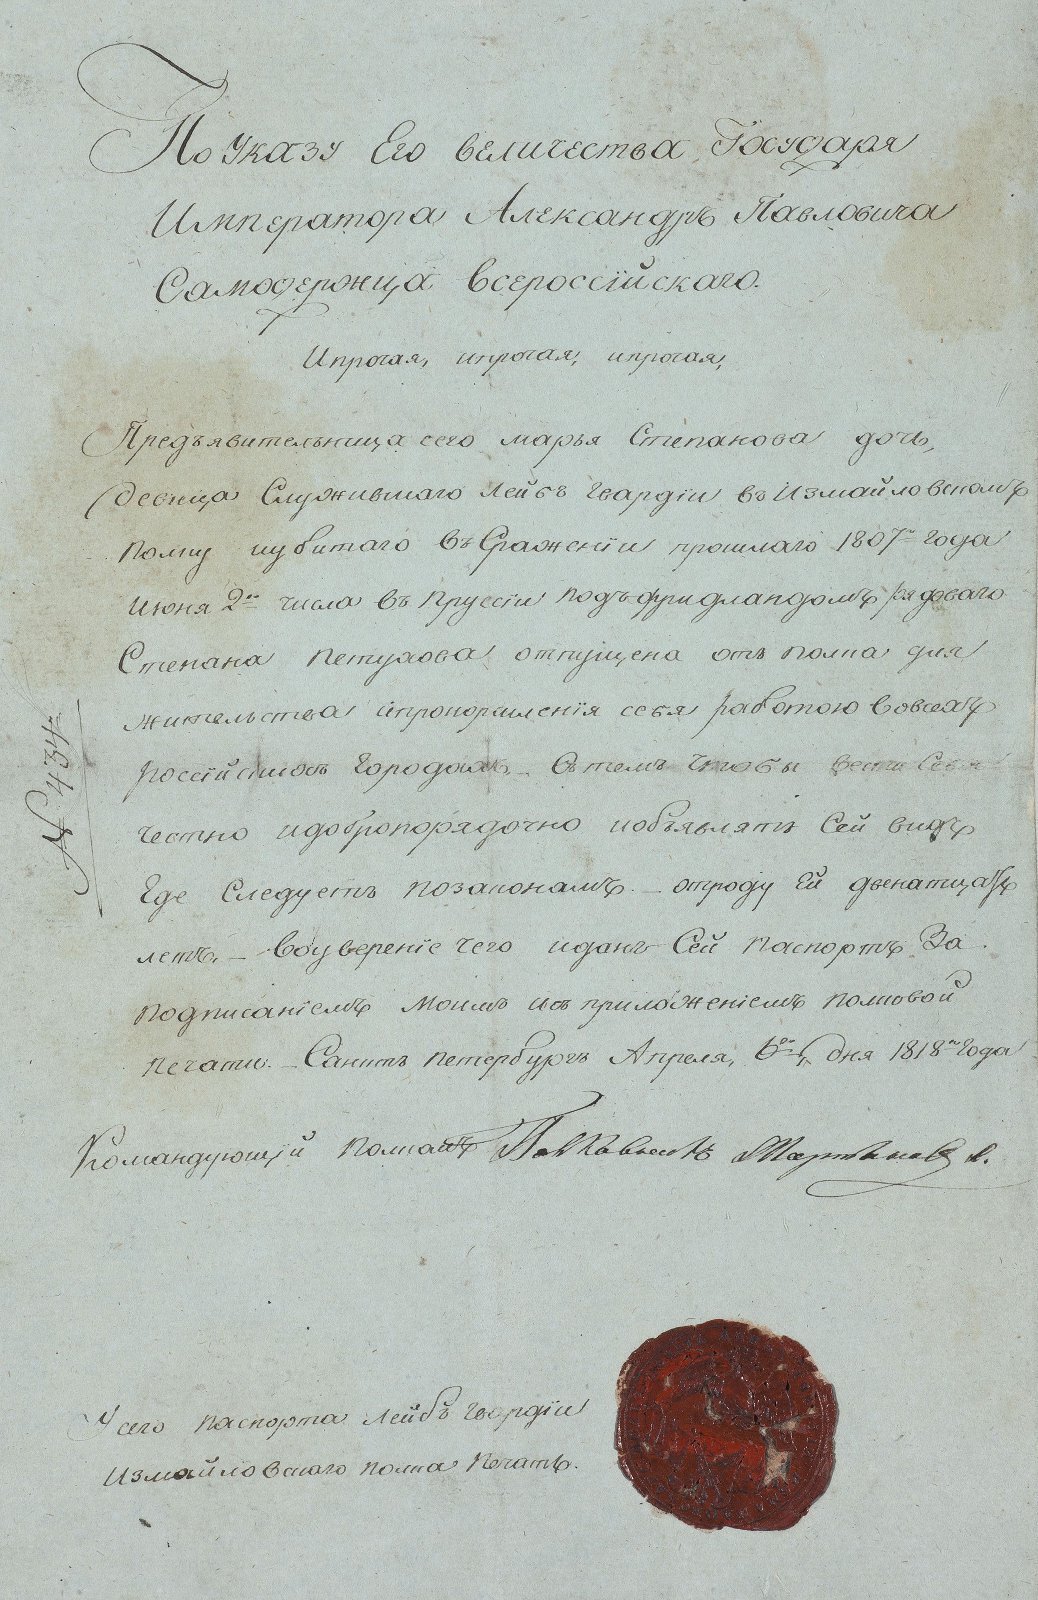 По указу Его величества Государя
Императора Александръ Павловича
Самодержца всероссїйскаго.
Ипрочая, ипрочая, ипрочая,
Предъявительница сего марья Степанова дочь,
девица Служившаго Лейбъ Гвардїи въ Измайловскомъ
полку иубитаго въ Сраженїи прошлаго 1807го года
июня 2го числа въ Пруссїи подъ фридландомъ рядоваго
Степана Петухова отпущена отъ полка для
жительства ипрокормленїя себя работою вовсехъ
россїйскихъ городахъ – Стемъ чтобы вести Себя
честно идобропорядочно иобъявлять Сей видъ
Где Следуетъ позаконамъ. – отроду Ей двенатцать
летъ. – Воуверенїе чего иданъ Сей паспортъ За
подписанїемъ моимъ исъ приложенїемъ полковой
печати. – Санктъ петербургъ Апреля, 6го дня 1818го года
Командующїй полкомъ Полковникъ Мартыновъ
У сего паспорта Лейбъ гвардїи
Измайловскаго полка Печать.
№ 434